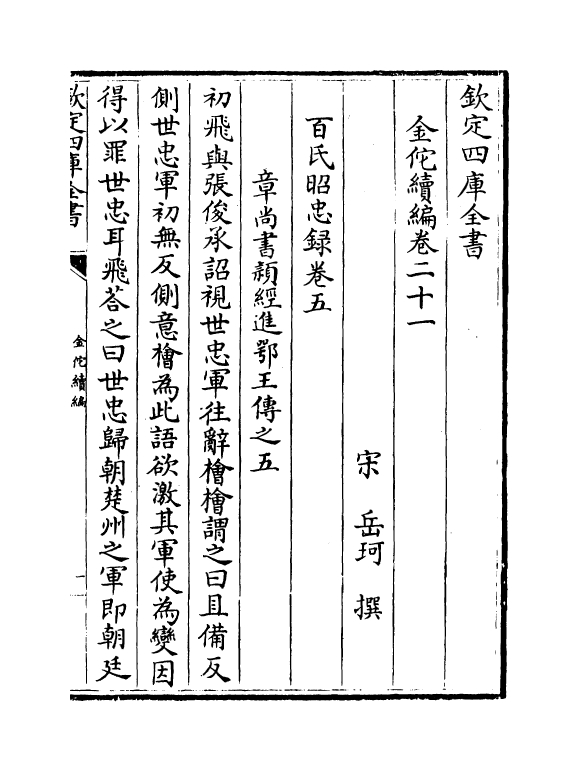 欽定四庫全書
金佗續編卷二十一
宋 岳珂 撰
百氏昭忠録卷五
章尚書潁經進鄂王傳之五
初飛與張俊承詔視世忠軍往辭檜檜謂之曰且備反
側世忠軍初無反側意檜為此語欲激其軍使為變因
得以罪世忠耳飛荅之曰世忠歸朝楚州之軍即朝廷
欽定四庫全書
金佗續編
一